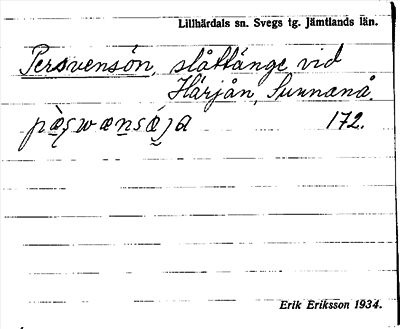 Lillhärdals sn. Svegs tg. Jämtlands län.
Persvensön, slåttänge vid
Härjån, Sunnanå.
172.
Erik Eriksson 1934.